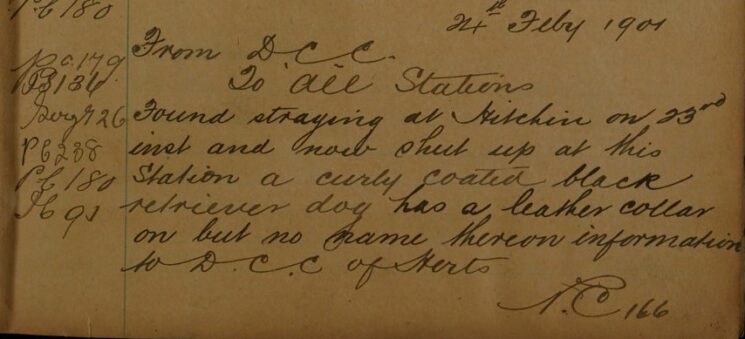 Pc 180
24th Feby 1901
From D.C.C.
Pc. 179
To all Stations
PS 136.
Sergt 26
Found straying at Hitchin on 23rd
Pc 238
inst and now shut up at this
Pc 180
Station a curly coated black
Pc 91
retriever dog has a leather collar
on but no name thereon information
to D.C.C of Herts
P.C 166